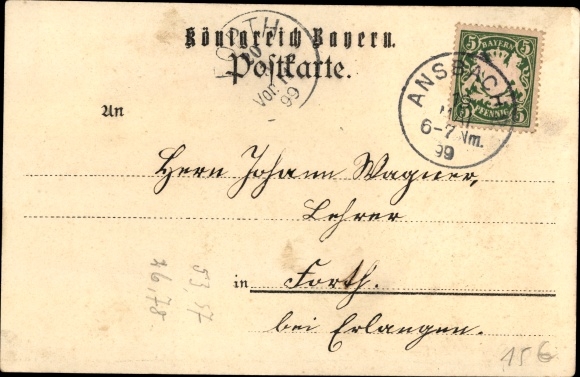 Königreich Bayern.
Postkarte.
FORTH
20
Vor.
99
5 BAYERN 5
5 PFENNIG 5
ANSBACH
6-7 Nm.
99
An
Herrn Johann Wagner,
Lehrer
in Forth.
bei Erlangen.
53 37
26,78
156